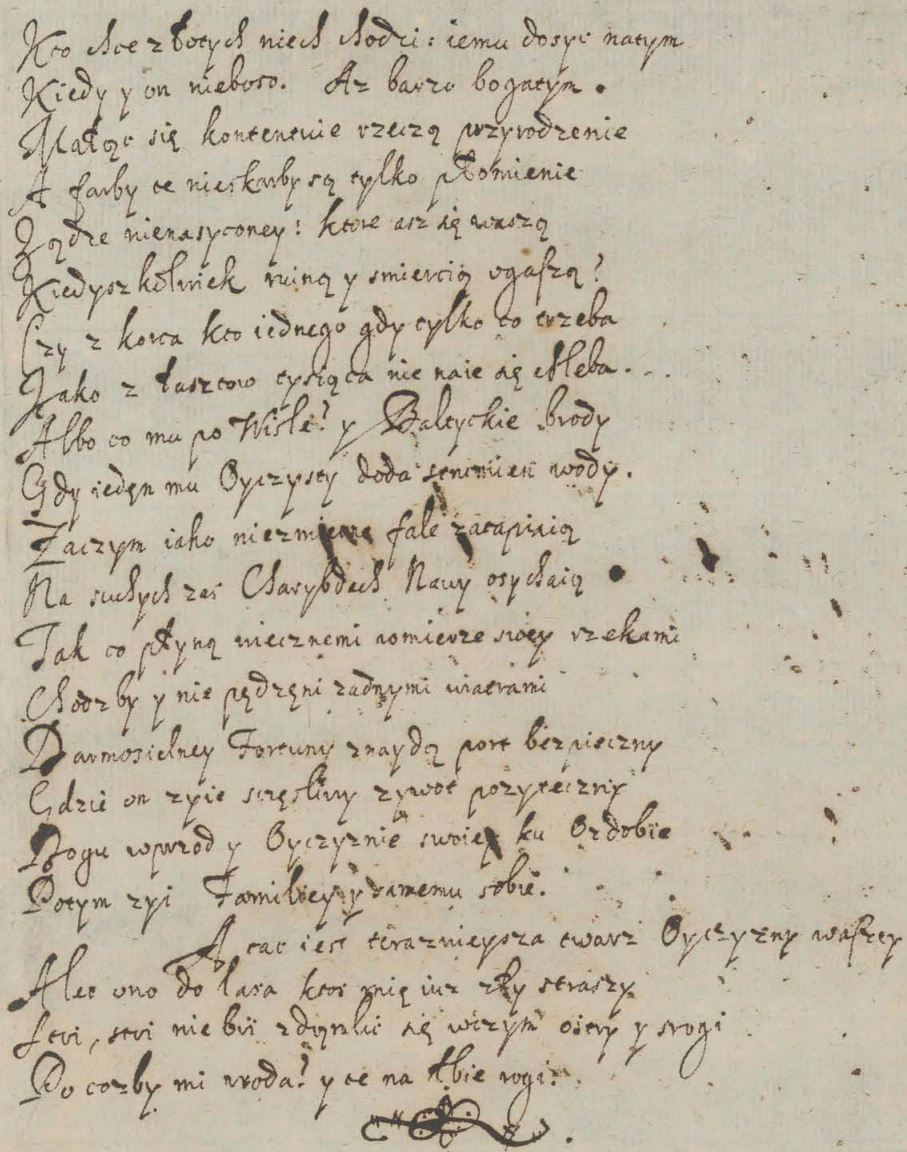 Kto chce z złotych niech chodzi: iemu dosyc natym
Kiedy y on nieboso. Az barzo bogatym.
Małąc się kontentuie rzeczą przyrodzenie
A farby te nieskarby są tylko płomienie
Ządze nienasyconey: ktore asz się waszą
Kiedyszkolwiek ruiną y smiercią vgaszą?
Czy z korca kto iednego gdy tylko co trzeba
Jako z łasztow tysiąca nie naie się chleba.
Albo co mu po Wiśle? y Baltyckie brody
Gdy iedęn mu Oyczysty doda strumień wody.
Zaczym iako niezmierne fale zatapiaią
Na suchych zaś Charybdach Nawy osychaią
Tak co płyną wiecznemi wmierze swey rzekami
Chodzby y nie pędzęni zadnymi wiatrami
Darmosielney Fortuny znaydą port bezpieczny
Gdzie on zyie scęsliwy zywot pozyteczny
Bogu wprzod y Oyczyznie swoiey ku Ozdobie
Potym zyi Familiey y samemu sobie.
A tac iest teraznieysza twarz Oyczyzny waszey
Alec ono do lasa ktos mię iuz zły straszy
Stoi, stoi nie bii zdąmki się wczym ostry y srogi
Po cozby mi vroda? y te na łbie rogi.